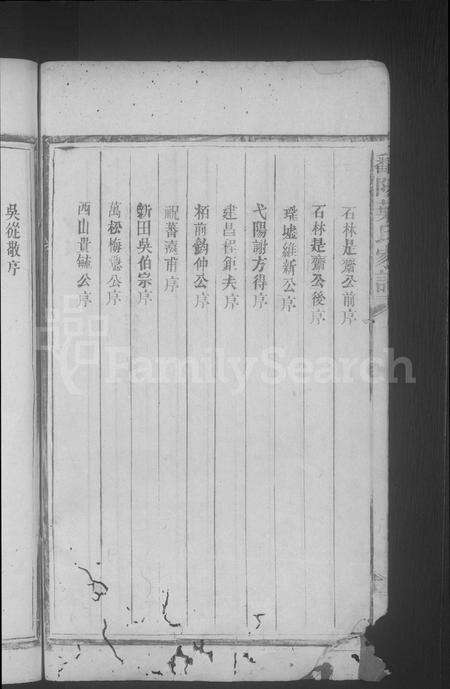 石林是齋公前序
石林是齋公後序
墟維新公序
弋陽謝方得序
建昌程鉅夫序
栢前鈞仲公序
祝蕃遠甫序
新田吳伯宗序
萬松梅隱公序
西山貴鏞公序
吳從敬序
FamilySearch